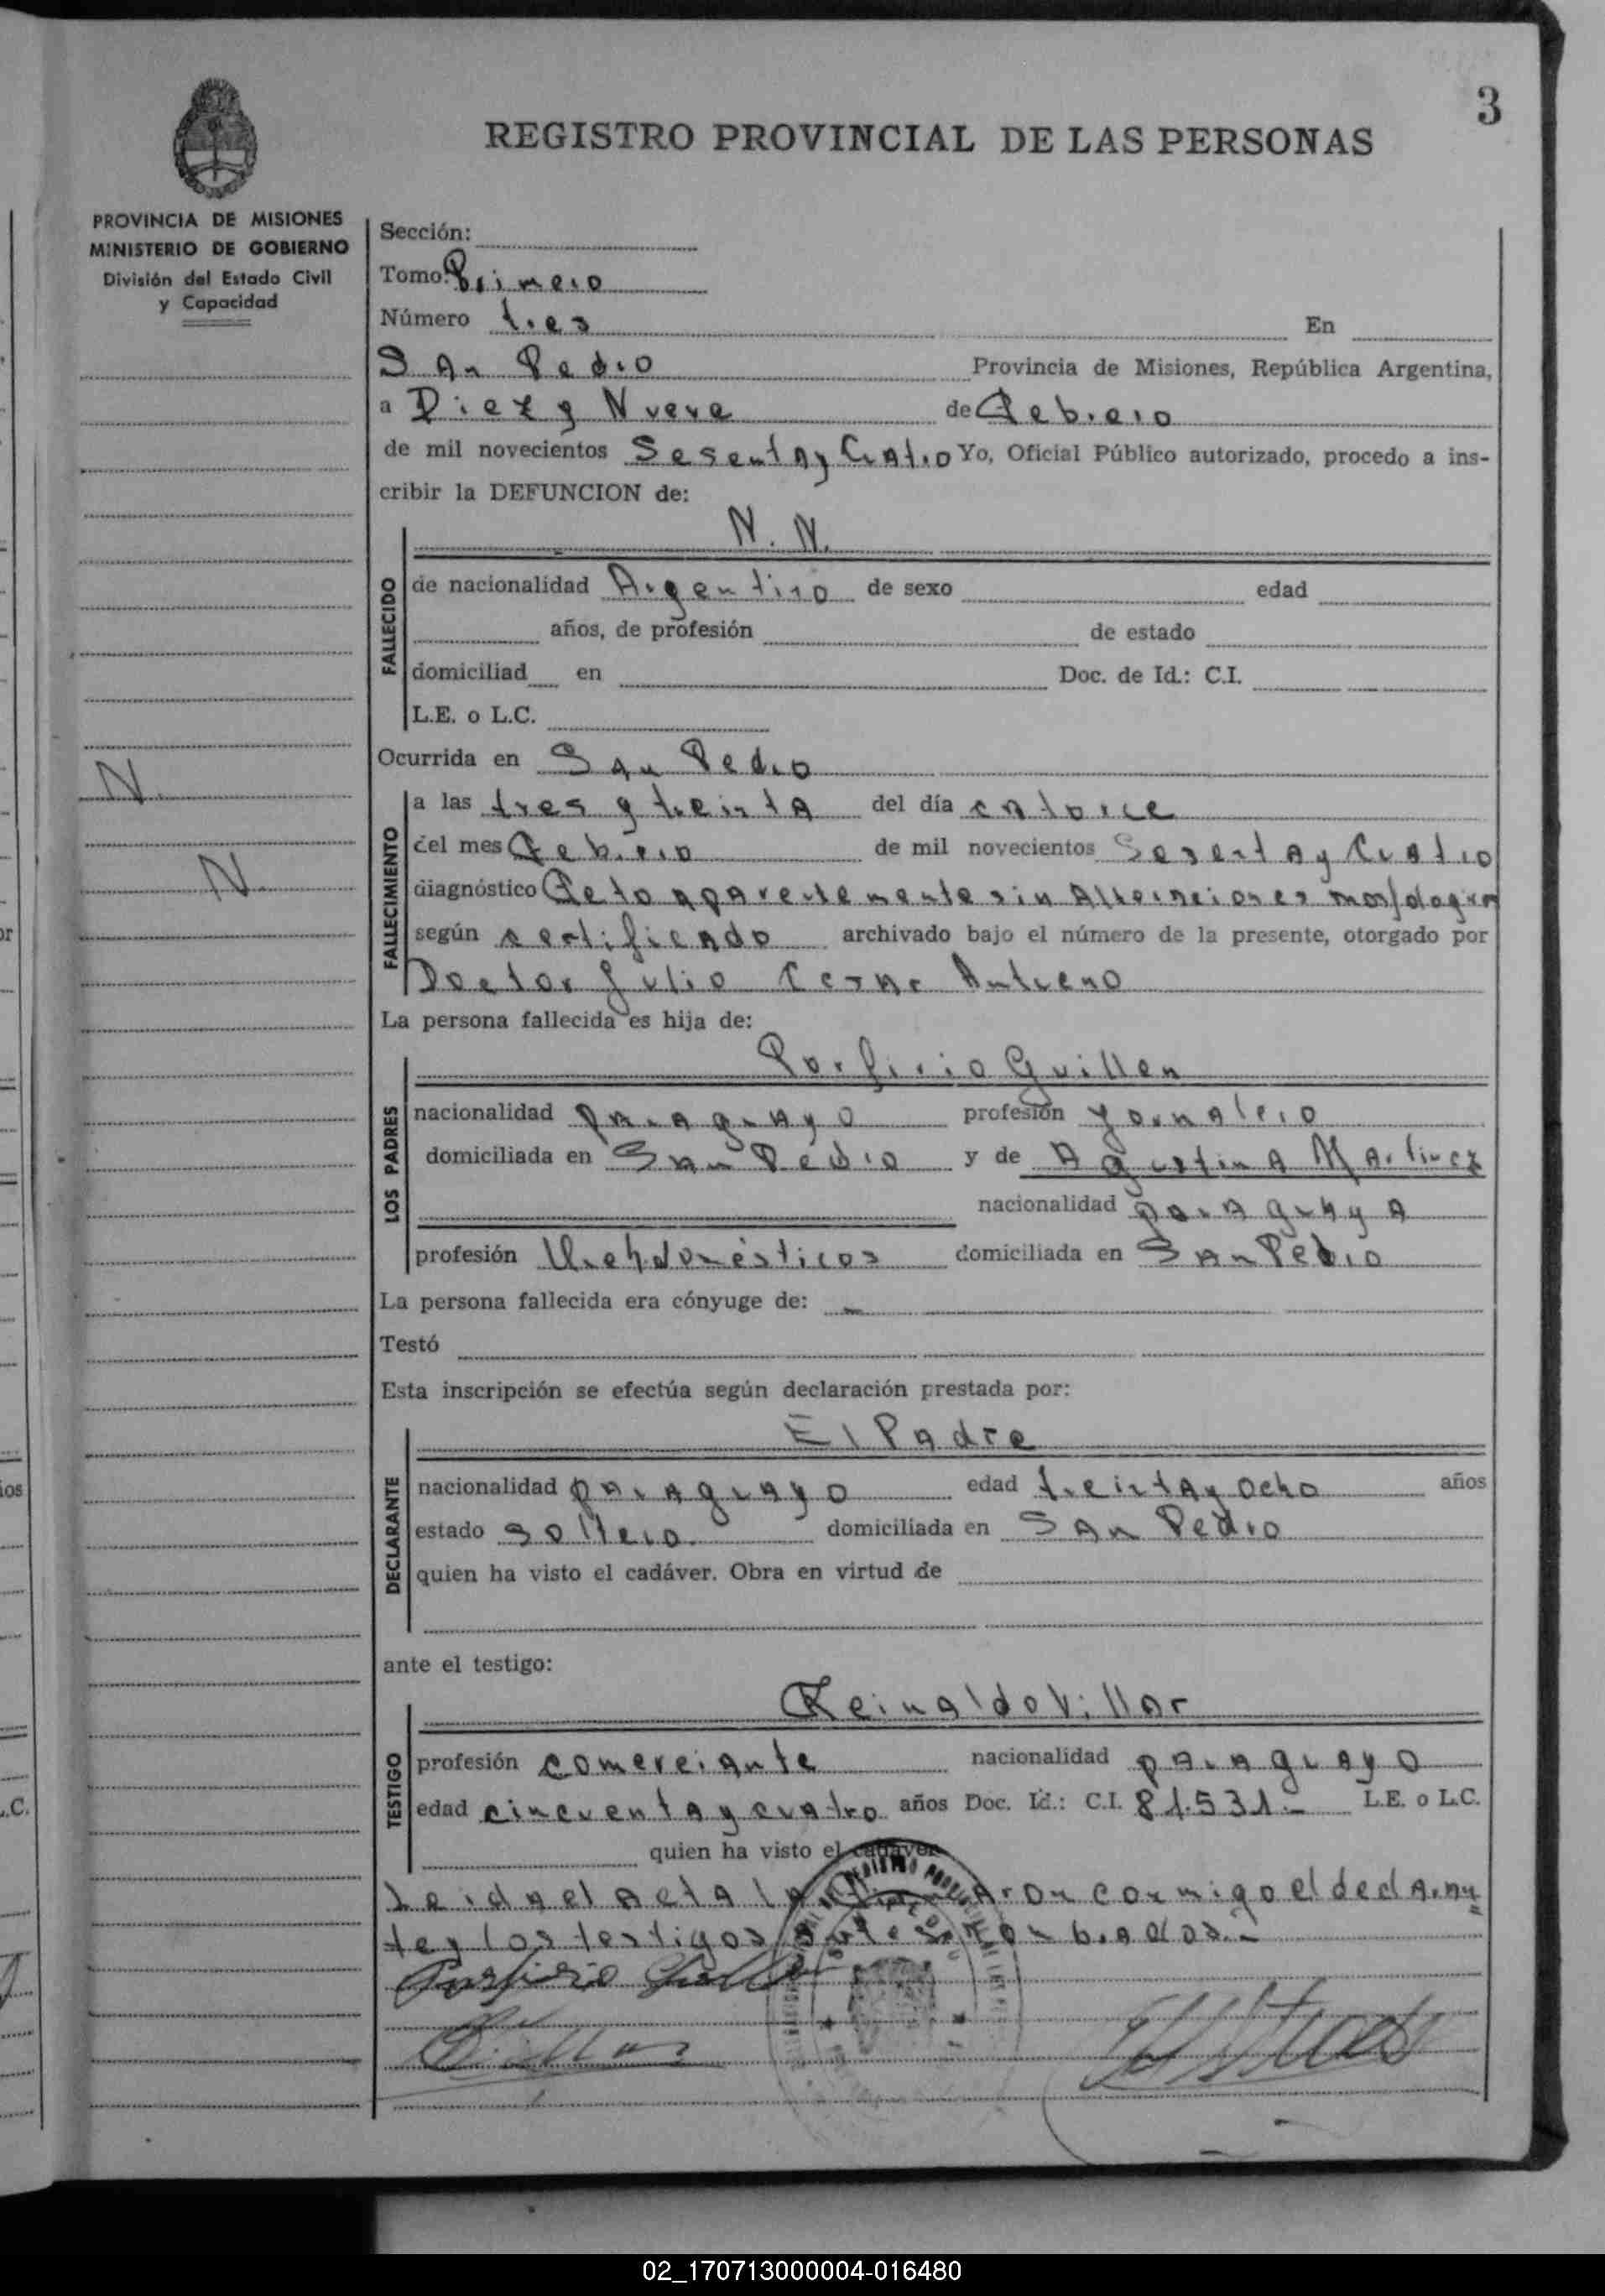 3
REGISTRO PROVINCIAL DE LAS PERSONAS
PROVINCIA DE MISIONES
MINISTERIO DE GOBIERNO
División del Estado Civil
y Capacidad
N.
N.
Sección:
Tomo: Primero
Número tres En
San Pedro Provincia de Misiones, República Argentina,
a Diez y Nueve de Febrero
de mil novecientos Sesenta y Cuatro Yo, Oficial Público autorizado, procedo a ins-
cribir la DEFUNCION de:
N. N.
FALLECIDO
de nacionalidad Argentino de sexo edad
años, de profesión de estado
domiciliad en Doc. de Id.: C.I.
L.E. o L.C.
Ocurrida en San Pedro
FALLECIMIENTO
a las tres y treinta del día catorce
del mes Febrero de mil novecientos Sesenta y Cuatro
diagnóstico Feto aparentemente sin Alteraciones
según certificado archivado bajo el número de la presente, otorgado por
Doctor Julio Cesar
La persona fallecida es hija de:
LOS PADRES
Porfirio Guillen
nacionalidad paraguayo profesión yornalero
domiciliada en San Pedro y de Agustina Martinez
nacionalidad paraguaya
profesión domésticos domiciliada en San Pedro
La persona fallecida era cónyuge de: -
Testó
Esta inscripción se efectúa según declaración prestada por:
DECLARANTE
El Padre
nacionalidad paraguayo edad treinta y ocho años
estado soltero domiciliada en San Pedro
quien ha visto el cadáver. Obra en virtud de
ante el testigo:
TESTIGO
Reinaldo Villar
profesión comerciante nacionalidad paraguayo
edad cincuenta y cuatro años Doc. Id.: C.I. 81.531.- L.E. o L.C.
quien ha visto el cadáver
Leida el acta la firmaron conmigo el declaran
te y los testigos antes nombrados.-
Porfirio Guillen
02_170713000004-016480